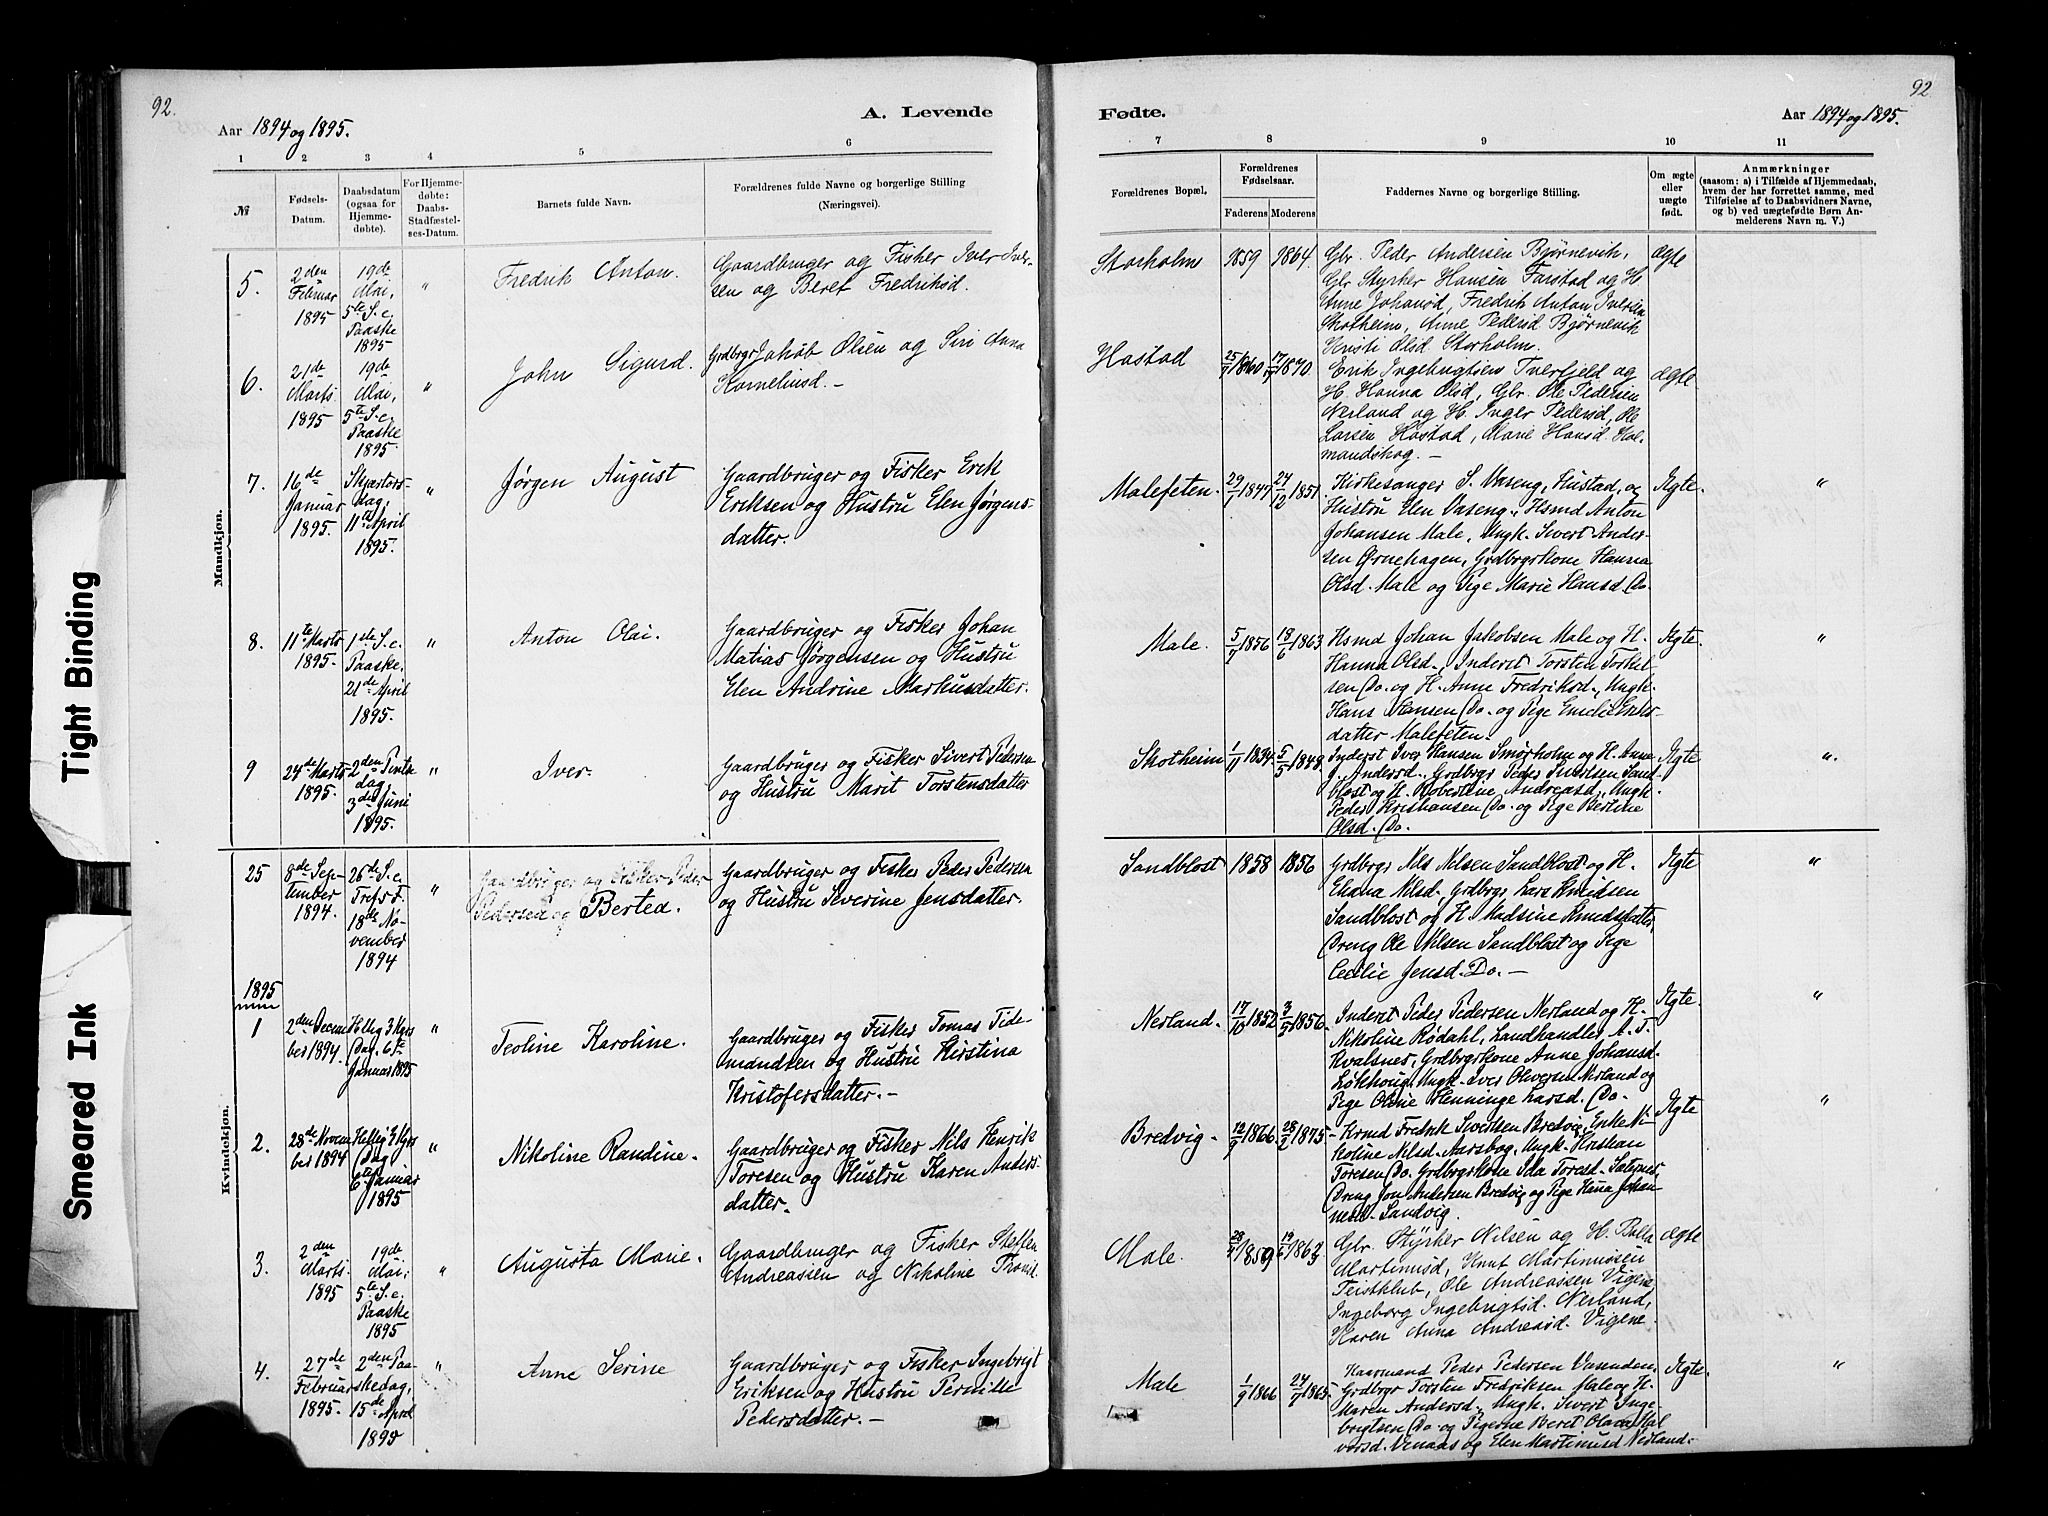 Tight Binding
Smeared Ink
92.
Aar 1894 og 1895.
A. Levende
1 2 3 4 5 6
№
Fødsels-
Datum.
Daabsdatum
(ogsaa for
Hjemme-
døbte).
For Hjemme-
døbte:
Daabs-
Stadfæstel-
ses-Datum.
Barnets fulde Navn.
Forældrenes fulde Navne og borgerlige Stilling
(Næringsvei).
Mandkjøn.
5.
2den
Februar
1895
19de
Mai,
5te S. e.
Paaske
1895
"
Fredrik Anton.
Gaardbruger og Fisker Iver Iver-
sen og Beret Fredriksd.
6.
21de
Marts
1895
19de
Mai,
5te S. e.
Paaske
1895.
"
John Sigurd.
Grdbrgr Jakob Olsen og Siri Anna
Korneliusd. –
7.
16de
Januar
1895.
Skjærtors-
dag,
11te April
1895.
"
Jørgen August
Gaardbruger og Fisker Erik
Eriksen og Hustru Elen Jørgens-
datter.
8.
11te Marts
1895.
1ste S. e.
Paaske,
21de April
1895.
"
Anton Olai.
Gaardbruger og Fisker Johan
Matias Jørgensen og Hustru
Elen Andrine Markusdatter.
9
24de Marts
1895.
2den Pintse-
dag,
3die Juni
1895.
"
Iver.
Gaardbruger og Fisker Sivert Pedersen
og Hustru Marit Torstensdatter
Kvindekjøn.
25
8de Sep-
tember
1894.
26de S. e.
Tref. s F.
18de No-
vember
1894
"
Gaardbruger og Fisker Peder
Pedersen og Bertea.
Gaardbruger og Fisker Peder Pedersen
og Hustru Severine Jensdatter.
1895
1
2den Decem
ber 1894.
Hellig 3 Kgrs
Dag 6te
Januar 1895
"
Teoline Karoline.
Gaardbruger og Fisker Tomas Tide-
mandsen og Hustru Kirstina
Kristofersdatter. –
2.
28de Novem
ber 1894
Hellig 3 Kgrs
Dag
6te Januar
1895
"
Nikoline Randine.
Gaardbruger og Fisker Nels Henrik
Toresen og Hustru Karen Anders-
datter.
3.
2den
Marts
1895
19de
Mai,
5te S. e.
Paaske
1895
"
Augusta Marie.
Gaardbruger og Fisker Steffen
Andreassen og Nikoline Tronsd.
4.
27de
Februar
1895.
2den Paa-
skedag,
15de April
1895
"
Anne Serine
Gaardbruger og Fisker Ingebrigt
Eriksen og Hustru Pernille
Pedersdatter. –
92
Fødte.
Aar 1894 og 1895.
7 8 9 10 11
Forældrenes Bopæl.
Forældrenes
Fødselsaar.
Faderens Moderens
Faddernes Navne og borgerlige Stilling.
Om ægte
eller
uægte
født.
Anmærkninger
(saasom: a) i Tilfælde af Hjemmedaab,
hvem der har forrettet samme, med
Tilføielse af to Daabsvidners Navne,
og b) ved uægtefødte Børn An-
melderens Navn m. V.)
Storholm
1859
1864.
Gbr. Peder Andersen Bjørnevik,
Gbr Styrker Hansen Farstad og H.
Anne Johansd, Fredrik Anton Iversen
Skotheim, Anne Pedersd Bjørnevik
Kristi Olsd Storholm.
ægte
Hostad
25/7 1860
17/9 1870.
Erik Ingebrigtsen Tverfjeld og
H. Hanna Olsd, Gbr. Ole Pedersen
Nerland og H. Inger Pedersd, Ole
Larsen Hostad, Marie Hansd. Hol-
mandskog. –
ægte
Malefeten.
29/1 1847
24/12 1851.
Kirkesanger S. Vaseng, Hustad, og
Hustru Elen Vaseng, Hsmd Anton
Johansen Male, Ungk. Sivert Ander-
sen Ørnehagen, Grdbrgrkone Hanna
Olsd. Male og Pige Marie Hansd. Do.
Ægte.
"
Male.
5/7 1856
18/6 1863
Hsmd Johan Jakobsen Male og H.
Hanna Olsd., Inderst Torsten Torkel-
sen Do. og H. Anne Fredriksd., Ungk.
Hans Hansen Do. og Pige Emelie Eriks-
datter Malefeten.
Ægte.
"
Skotheim
1/11 1834.
5/5 1848.
Inderst Iver Hansen Smørholm og H. Anne
J. Andersd., Grdbrgr Peder Sivertsen Sand-
blost og H. Robertine Andreasd., Ungk.
Peder Kristiansen Do. og Pige Bertine
Olsd. Do.
Ægte
".
Sandblost
1858
1856
Grdbrgr Nels Nelsen Sandblost og H.
Eliana Nelsd., Grdbrgr Lars Knutsen
Sandblost og H. Madsine Knudsdatter,
Dreng Ole Nelsen Sandblost og Pige
Cecilie Jensd. Do. –
Ægte
"
Nerland.
17/10 1852
3/5 1856.
Inderst Peder Pedersen Nerland og H.
Nikoline Rødahl, Landhandler A. T.
Kvalsnes, Grdbrgrkone Anne Johansd.
Løkhoug, Ungk. Iver Oliversen Nerland og
Pige Oline Henninge Larsd. Do.
Ægte
"
Bredvig.
12/9 1866
28/2 1875
Krmd Fredrik Sivertsen Bredvig, Enke Ni-
koline Nelsd. Aarsbog, Ungk. Kristian
Toresen Do. Grdbrgrkone Ida Toresd.
Dreng Jon Andersen Bredvig og Pige Hana Johan-
nesd. Sandvig.
Ægte
"
Male.
1859
1863
Gbr. Styrker Nilsen og H. Balla
Martinusd, Knut Martinussen
Teistklub, Ole Andreassen Vigene
Ingeborg Ingebrigtsd. Nerland,
Karen Anna Andreasd. Vigene.
ægte
Male
1/9 1866
24/7 1865.
Kaarmand Peder Pedersen Vasenden,
Grdbrgr Torsten Fredriksen Male og H.
Maren Andersd., Ungk. Sivert Inge-
brigtsen Do. og Pigerne Beret Olava Hal
vorsd. Venaas og Elen Martinusd Nerland.
Ægte.
"